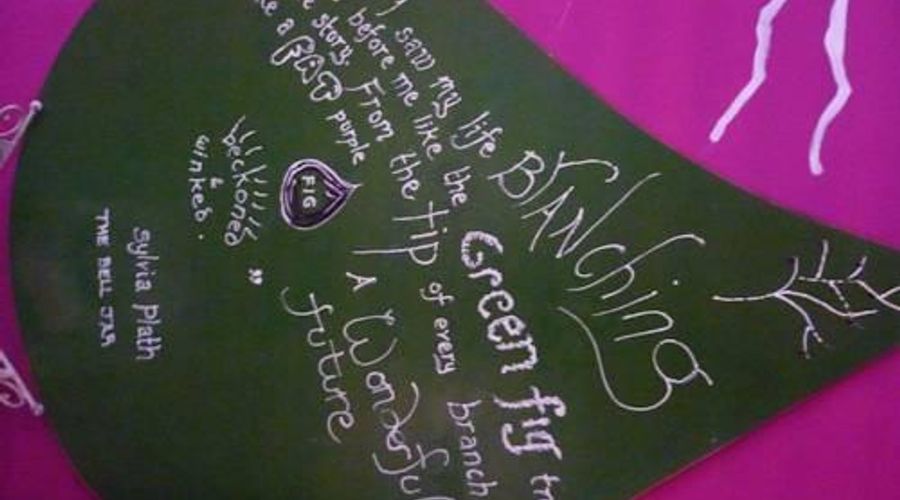 I saw my life BrANching
before me like the Green fig tr
story. From the tip of every branch
a FAT purple FIG, A Wonderful
future
beckoned
&
winked. ”
Sylvia Plath
THE BELL JAR